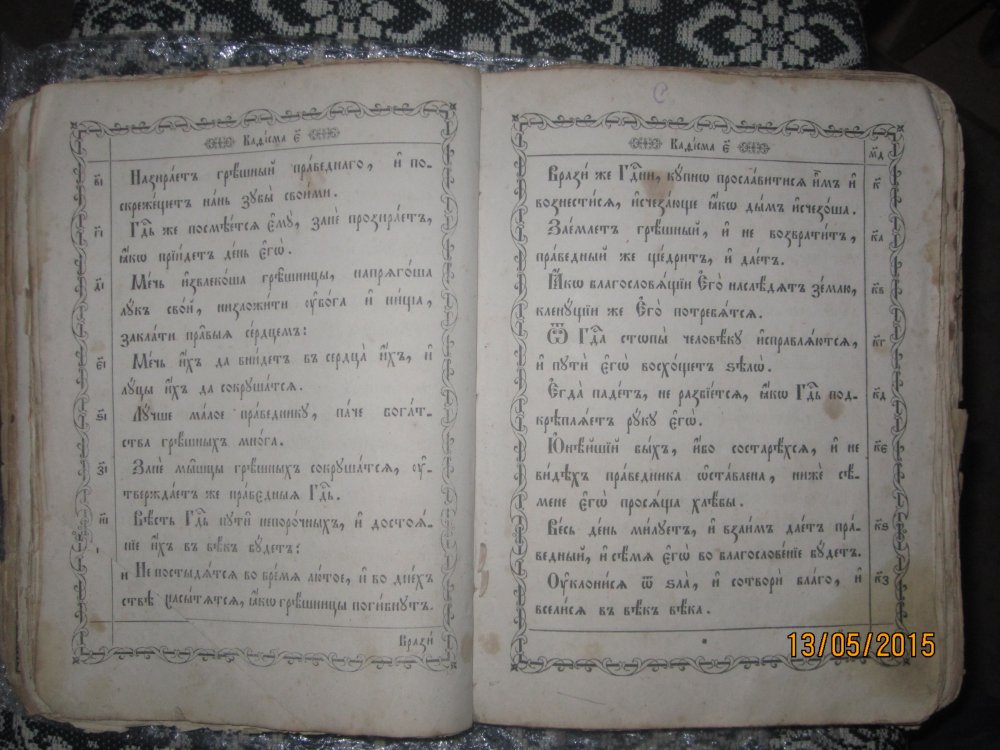 Каѳісма є҃
в҃і
Назира́етъ грѣ́шный пра́веднаго, и҆ по-
скреже́щетъ на́нь зꙋбы̀ свои́ми.
г҃і
Гдⷭ҇ь же посмѣе́тсѧ є҆мꙋ̀, занѐ прозира́етъ,
ꙗ҆́кѡ прїи́детъ де́нь є҆гѡ̀.
д҃і
Ме́чь и҆звлеко́ша грѣ̑шницы, напрѧго́ша
лꙋ́къ сво́й, низложи́ти ᲂу҆бо́га и҆ ни́ща,
закла́ти пра̑выѧ се́рдцемъ:
є҃і
Ме́чь и҆́хъ да вни́детъ въ сердца̀ и҆́хъ, и҆
лꙋ́цы и҆́хъ да сокрꙋша́тсѧ.
ѕ҃і
Лꙋ́чше ма́лое пра́ведникꙋ, па́че бога́т-
ства грѣ́шныхъ мно́га.
з҃і
Занѐ мы̑шцы грѣ́шныхъ сокрꙋша́тсѧ, ᲂу҆-
твержда́етъ же пра́вєдныѧ Гдⷭ҇ь.
и҃і
Вѣ́сть Гдⷭ҇ь пꙋти̑ непоро́чныхъ, и҆ достоѧ́-
нїе и҆́хъ въ вѣ́къ бꙋ́детъ:
Не постыдѧ́тсѧ во вре́мѧ лю́тое, и҆ во дне́хъ
насы́тѧтсѧ, ꙗ҆́кѡ грѣ̑шницы поги́бнꙋтъ.
Врази́
Каѳісма є҃
м҃д
к҃
Врази́ же Гдⷭ҇ни, кꙋ́пнѡ просла́витисѧ и҆̀мъ и҆
вознести́сѧ, и҆счеза́юще ꙗ҆́кѡ ды́мъ и҆счезо́ша.
к҃а
Зае́млетъ грѣ́шный, и҆ не возврати́тъ,
пра́ведный же ще́дритъ, и҆ дае́тъ.
к҃в
Ꙗ҆́кѡ благословѧ́щїи Є҆го̀ наслѣ́дѧтъ зе́млю,
кленꙋ́щїи же Є҆го̀ потребѧ́тсѧ.
к҃г
Ѿ Гдⷭ҇а стѡпы̀ человѣ́кꙋ и҆справлѧ́ютсѧ,
и҆ пꙋти̑ є҆гѡ̀ восхо́щетъ ѕѣлѡ̀.
к҃д
Є҆гда̀ паде́тъ, не разбїе́тсѧ, ꙗ҆́кѡ Гдⷭ҇ь под-
крѣплѧ́етъ рꙋ́кꙋ є҆гѡ̀.
к҃є
Ю҆нѣ́йшїй бы́хъ, и҆́бо состарѣ́хсѧ, и҆ не
ви́дѣхъ пра́ведника ѡ҆ста́влена, нижѐ сѣ́-
мене є҆гѡ̀ просѧ́ща хлѣ́бы.
к҃ѕ
Ве́сь де́нь ми́лꙋетъ, и҆ взаи́мъ дае́тъ пра́-
ведный, и҆ сѣ́мѧ є҆гѡ̀ во благослове́нїе бꙋ́детъ.
к҃з
Оу҆клони́сѧ ѿ ѕла̀, и҆ сотворѝ бла́го, и҆
всели́сѧ въ вѣ́къ вѣ́ка.
13/05/2015